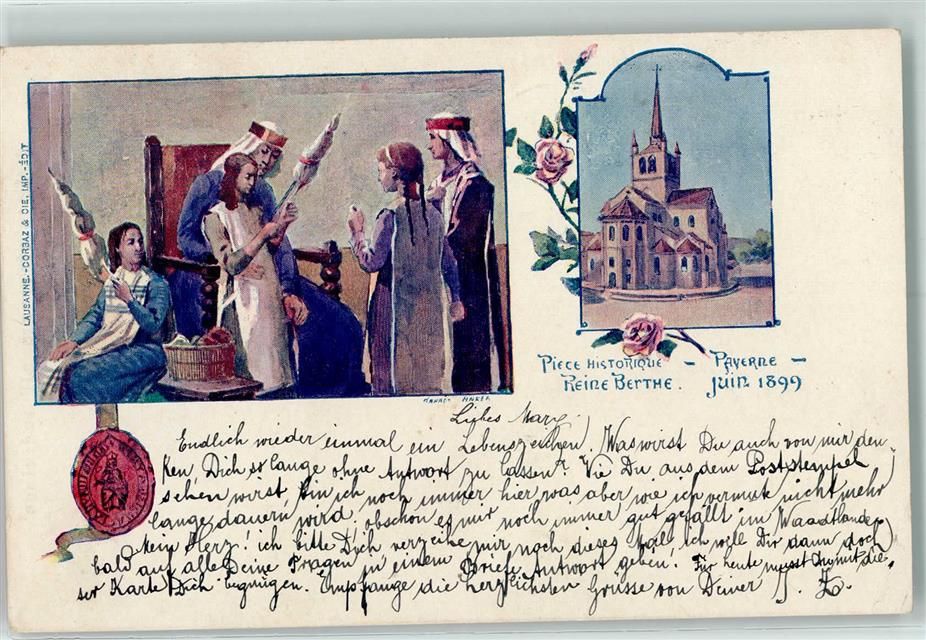 LAUSANNE.-CORBAZ & CIE, IMP.-ÉDIT
PIECE HISTORIQUE – PAYERNE –
REINE BERTHE. JUIN 1899
Liebes Mary.
Endlich wieder einmal ein Lebenszeichen! Was wirst Du auch von mir den
ken, Dich so lange ohne Antwort zu lassen? Wie Du aus dem Poststempel
sehen wirst, bin ich noch immer hier, was aber wie ich vermute nicht mehr
lange dauern wird, obschon es mir noch immer gut gefällt im Waadtlande.
Mein Herz! ich bitte Dich verzeihe mir noch dieses Mal, ich will Dir dann doch
bald auf alle Deine Fragen in einem Briefe Antwort geben. Für heute musst Du mit die-
ser Karte Dich begnügen. Empfange die herzlichsten Grüsse von Deiner J. Z.